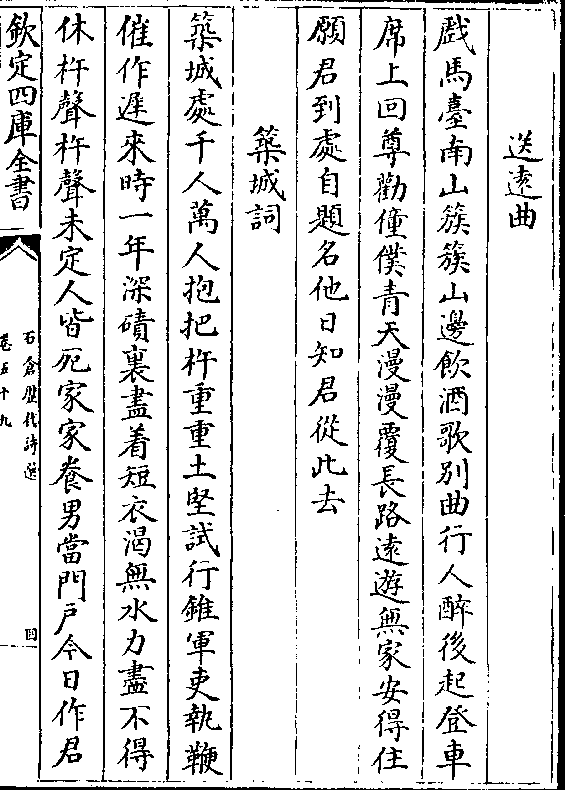 送遠曲
戲馬臺南山簇簇山邊飲酒歌别曲行人醉後起登車
席上回尊勸僮僕青天漫漫覆長路逺遊無家安得住
願君到處自題名他日知君從此去
築城詞
築城處千人萬人抱把杵重重土堅試行錐軍吏執鞭
催作遲來時一年深磧裏盡着短衣渴無水力盡不得
休杵聲杵聲未定人皆死家家養男當門户今日作君
欽定四庫全書
石倉歷代詩選
卷五十九
四